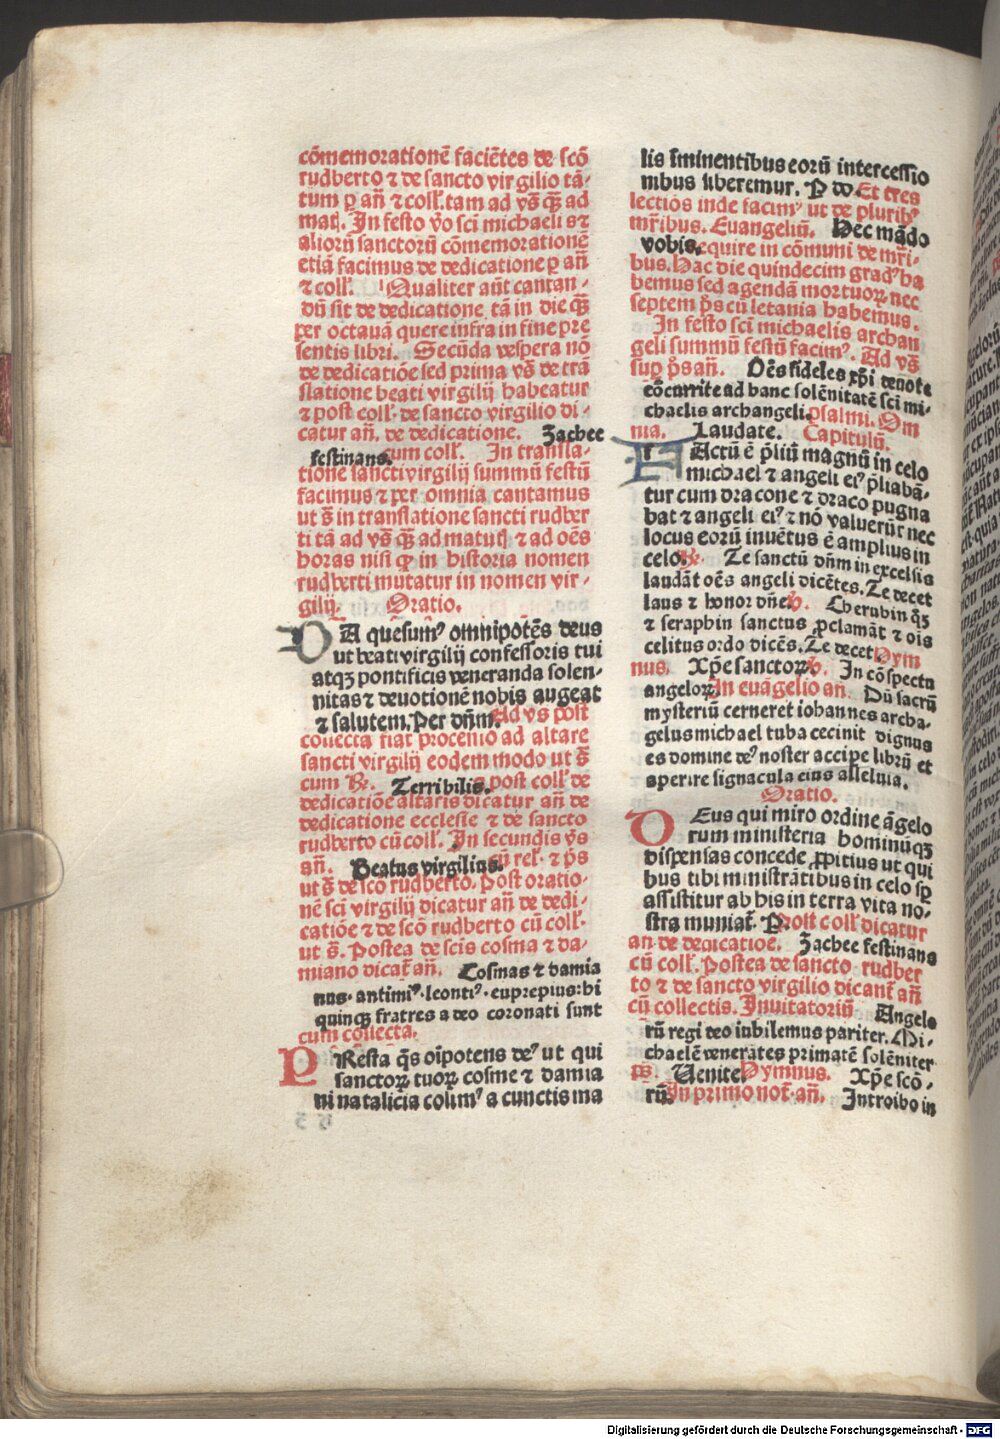 cōmemorationē faciētes de scō
rudberto ⁊ de sancto virgilio tā-
tum ꝑ añ ⁊ coll̄. tam ad vs̄ qꝫ̄ ad
matꝭ. In festo v̄o sci michaelis ⁊
aliorū sanctorū cōmemorationē
etiā facimus de dedicatione ꝑ añ
⁊ coll̄. Qualiter aūt cantan-
dū sit de dedicatione tā in die qꝫ̄
per octauā quere infra in fine pre
sentis libri. Secūda vespera nō
de dedicatiōe sed prima vs̄ de tra
slatione beati virgilij habeatur
⁊ post coll̄. de sancto virgilio di-
catur añ. de dedicatione. Zachee
festinans. cum coll̄. In transla-
tione sancti virgilij summū festū
facimus ⁊ per omnia cantamus
ut s̄ in translatione sancti rudber
ti tā ad vs̄ qꝫ̄ ad matutꝭ ⁊ ad oēs
horas nisi ꝙ in historia nomen
rudberti mutatur in nomen vir-
gilij. Oratio.
DA quesumꝰ omnipotēs deus
ut beati virgilij confessoris tui
atqꝫ pontificis veneranda solen-
nitas ⁊ deuotionē nobis augeat
⁊ salutem. Per dn̄m. Ad vs̄ post
collecta fiat procenio ad altare
sancti virgilij eodem modo ut s̄
cum ℟. Terribilis. post coll̄ de
dedicatiōe altaris dicatur añ de
dedicatione ecclesie ⁊ de sancto
rudberto cū coll̄. In secundis vs̄
añ. Beatus virgilius. cū rel̄. ⁊ p̄s
ut s̄ de scō rudberto. Post oratio-
nē sci virgilij dicatur añ de dedi-
catiōe ⁊ de scō rudberto cū coll̄.
ut s̄. Postea de scis cosma ⁊ da-
miano dicat̄ añ. Cosmas ⁊ damia
nus. antimiꝰ. leontiꝰ. euprepius. hi
quinqꝫ fratres a deo coronati sunt
cum collecta.
PResta qs̄ oīpotens deꝰ ut qui
sanctoꝝ tuoꝝ cosme ⁊ damia
ni natalicia colimꝰ a cunctis ma
lis īminentibus eorū intercessio
nibus liberemur. P do. Et tres
lectiōs inde facimꝰ ut de pluribꝰ
mr̄ibus. Euangeliū. Hec mādo
vobis. equire in cōmuni de mr̄i-
bus. Hac die quindecim gradꝰ ha
bemus sed agendā mortuoꝝ nec
septem p̄s cū letania habemus.
In festo sci michaelis archan
geli summū festū facimꝰ. Ad vs̄
suꝑ p̄s añ. Oēs fideles xp̄i deuote
cōcurrite ad hanc solēnitatē sci mi-
chaelis archangeli. psalmi. Om
nia. Laudate. Capitulū.
FActū ē p̄liū magnū in celo
michael ⁊ angeli eiꝰ p̄liabā-
tur cum dracone ⁊ draco pugna
bat ⁊ angeli eiꝰ ⁊ nō valuerūt nec
locus eorū inuētus ē amplius in
celo. ℟. Te sanctū dn̄m in excelsis
laudāt oēs angeli dicētes. Te decet
laus ⁊ honor dn̄e. ℣. Cherubin qꝫ
⁊ seraphin sanctus ꝓclamāt ⁊ oīs
celitus ordo dicēs. Te decet. Hym
nus. Xp̄e sanctoꝝ. ℣. In cōspectu
angeloꝝ. In euāgelio añ. Dū sacrū
mysteriū cerneret iohannes archa-
gelus michael tuba cecinit dignus
es domine deꝰ noster accipe librū et
aperire signacula eius alleluia.
Oratio.
DEus qui miro ordine āgelo
rum ministeria hominūqꝫ
dispensas concede ꝓpitius ut qui
bus tibi ministrātibus in celo sꝑ
assistitur ab his in terra vita no-
stra muniat̄. P. Post coll̄ dicatur
an de dedicatiōe. Zachee festinans
cū coll̄. Postea de sancto rudber
to ⁊ de sancto virgilio dicant̄ añ
cū collectis. Inuitatoriū Angelo
rū regi deo iubilemus pariter. Mi-
chaelē venerātes primatē solēniter
ps̄. Uenite. Hymnus. Xp̄e scō-
rū. In primo not̄. añ. Introibo in
Digitalisierung gefördert durch die Deutsche Forschungsgemeinschaft - DFG